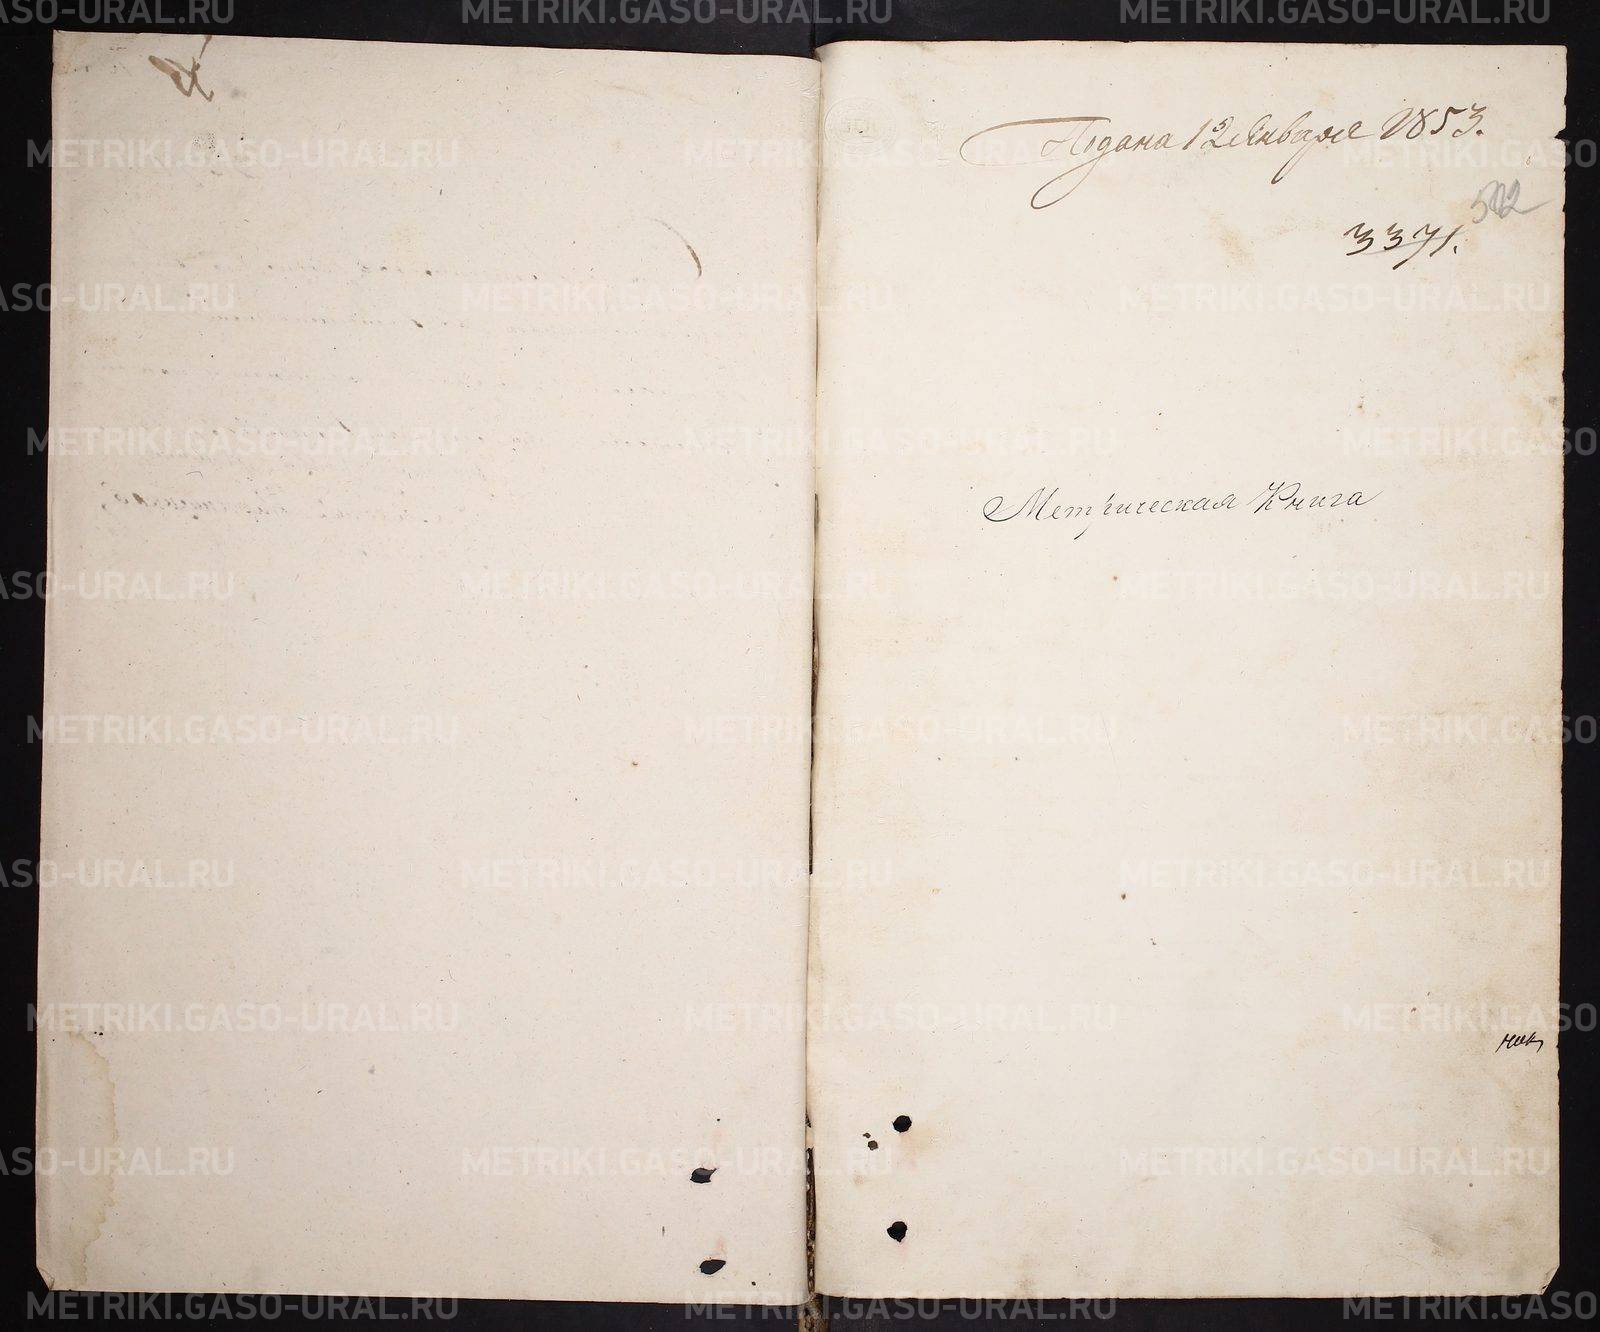 Подана 12 Января 1853.
502
3371.
Метрическая Книга
ник,
METRIKI.GASO-URAL.RU